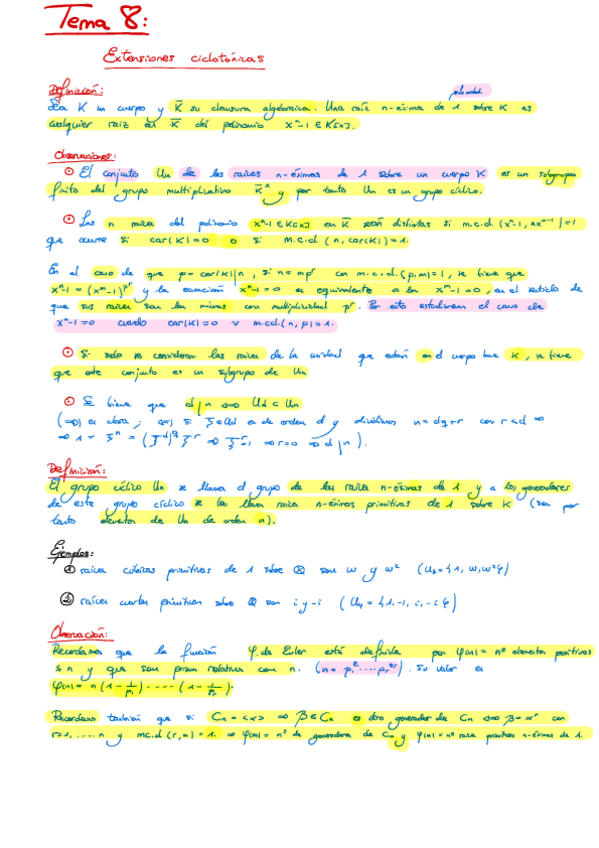 Tema 8:
Extensiones ciclotónicas
Definición:
Sea K un cuerpo y K̄ su clausura algebraica. Una raíz n-ésima de 1 sobre K es
cualquier raíz en K̄ del polinomio xⁿ-1 ∈ K[x].
Observaciones:
⊙ El conjunto Un de las raíces n-ésimas de 1 sobre un cuerpo K es un subgrupo
finito del grupo multiplicativo K̄ˣ y por tanto Un es un grupo cíclico.
⊙ Las n raíces del polinomio xⁿ-1 ∈ K[x] en K̄ serán distintas si m.c.d (xⁿ-1, nxⁿ⁻¹)=1
que ocurre si car(K)=0 o si m.c.d (n, car(K))=1.
En el caso de que p=car(K)|n, si n=mpʳ con m.c.d.(p,m)=1, se tiene que
xⁿ-1 = (xᵐ-1)^pʳ y la ecuación xⁿ-1=0 es equivalente a la xᵐ-1=0, en el sentido de
que sus raíces son las mismas con multiplicidad pʳ. Por esto estudiaremos el caso de
xⁿ-1=0 cuando car(K)=0 ∨ m.c.d.(n,p)=1.
⊙ Si solo se consideran las raíces de la unidad que están en el cuerpo base K, se tiene
que este conjunto es un subgrupo de Un
⊙ Se tiene que d|n ⟺ Ud ⊂ Un
(⇒) es claro; ⇐) si ξ∈Ud es de orden d y dividimos n=dq+r con r<d ⇒
⇒ 1 = ξⁿ = (ξᵈ)^q ξʳ ⇒ ξʳ=1 ⇒ r=0 ⇒ d|n).
Definición:
El grupo cíclico Un se llama el grupo de las raíces n-ésimas de 1 y a los generadores
de este grupo cíclico se les llama raíces n-ésimas primitivas de 1 sobre K (son por
tanto elementos de Un de orden n).
Ejemplos:
① raíces cúbicas primitivas de 1 sobre Q son w y w² (U₃={1, w, w²})
② raíces cuartas primitivas sobre Q son i y -i (U₄={1,-1, i,-i})
Observación:
Recordamos que la función φ de Euler está definida por φ(n)= nº elementos positivos
≤ n y que son primos relativos con n. (n= p₁^e₁ ..... pᵣ^eʳ). Su valor es
φ(n)= n (1-1/p₁) ..... (1-1/pᵣ).
Recordamos también que si Cn = <α> ⇒ β∈Cn es otro generador de Cn ⟺ β=αʳ con
r=1, ..., n y m.c.d (r,n)=1. ⇒ φ(n)= nº de generadores de Cn y φ(n)= nº raíces primitivas n-ésimas de 1.